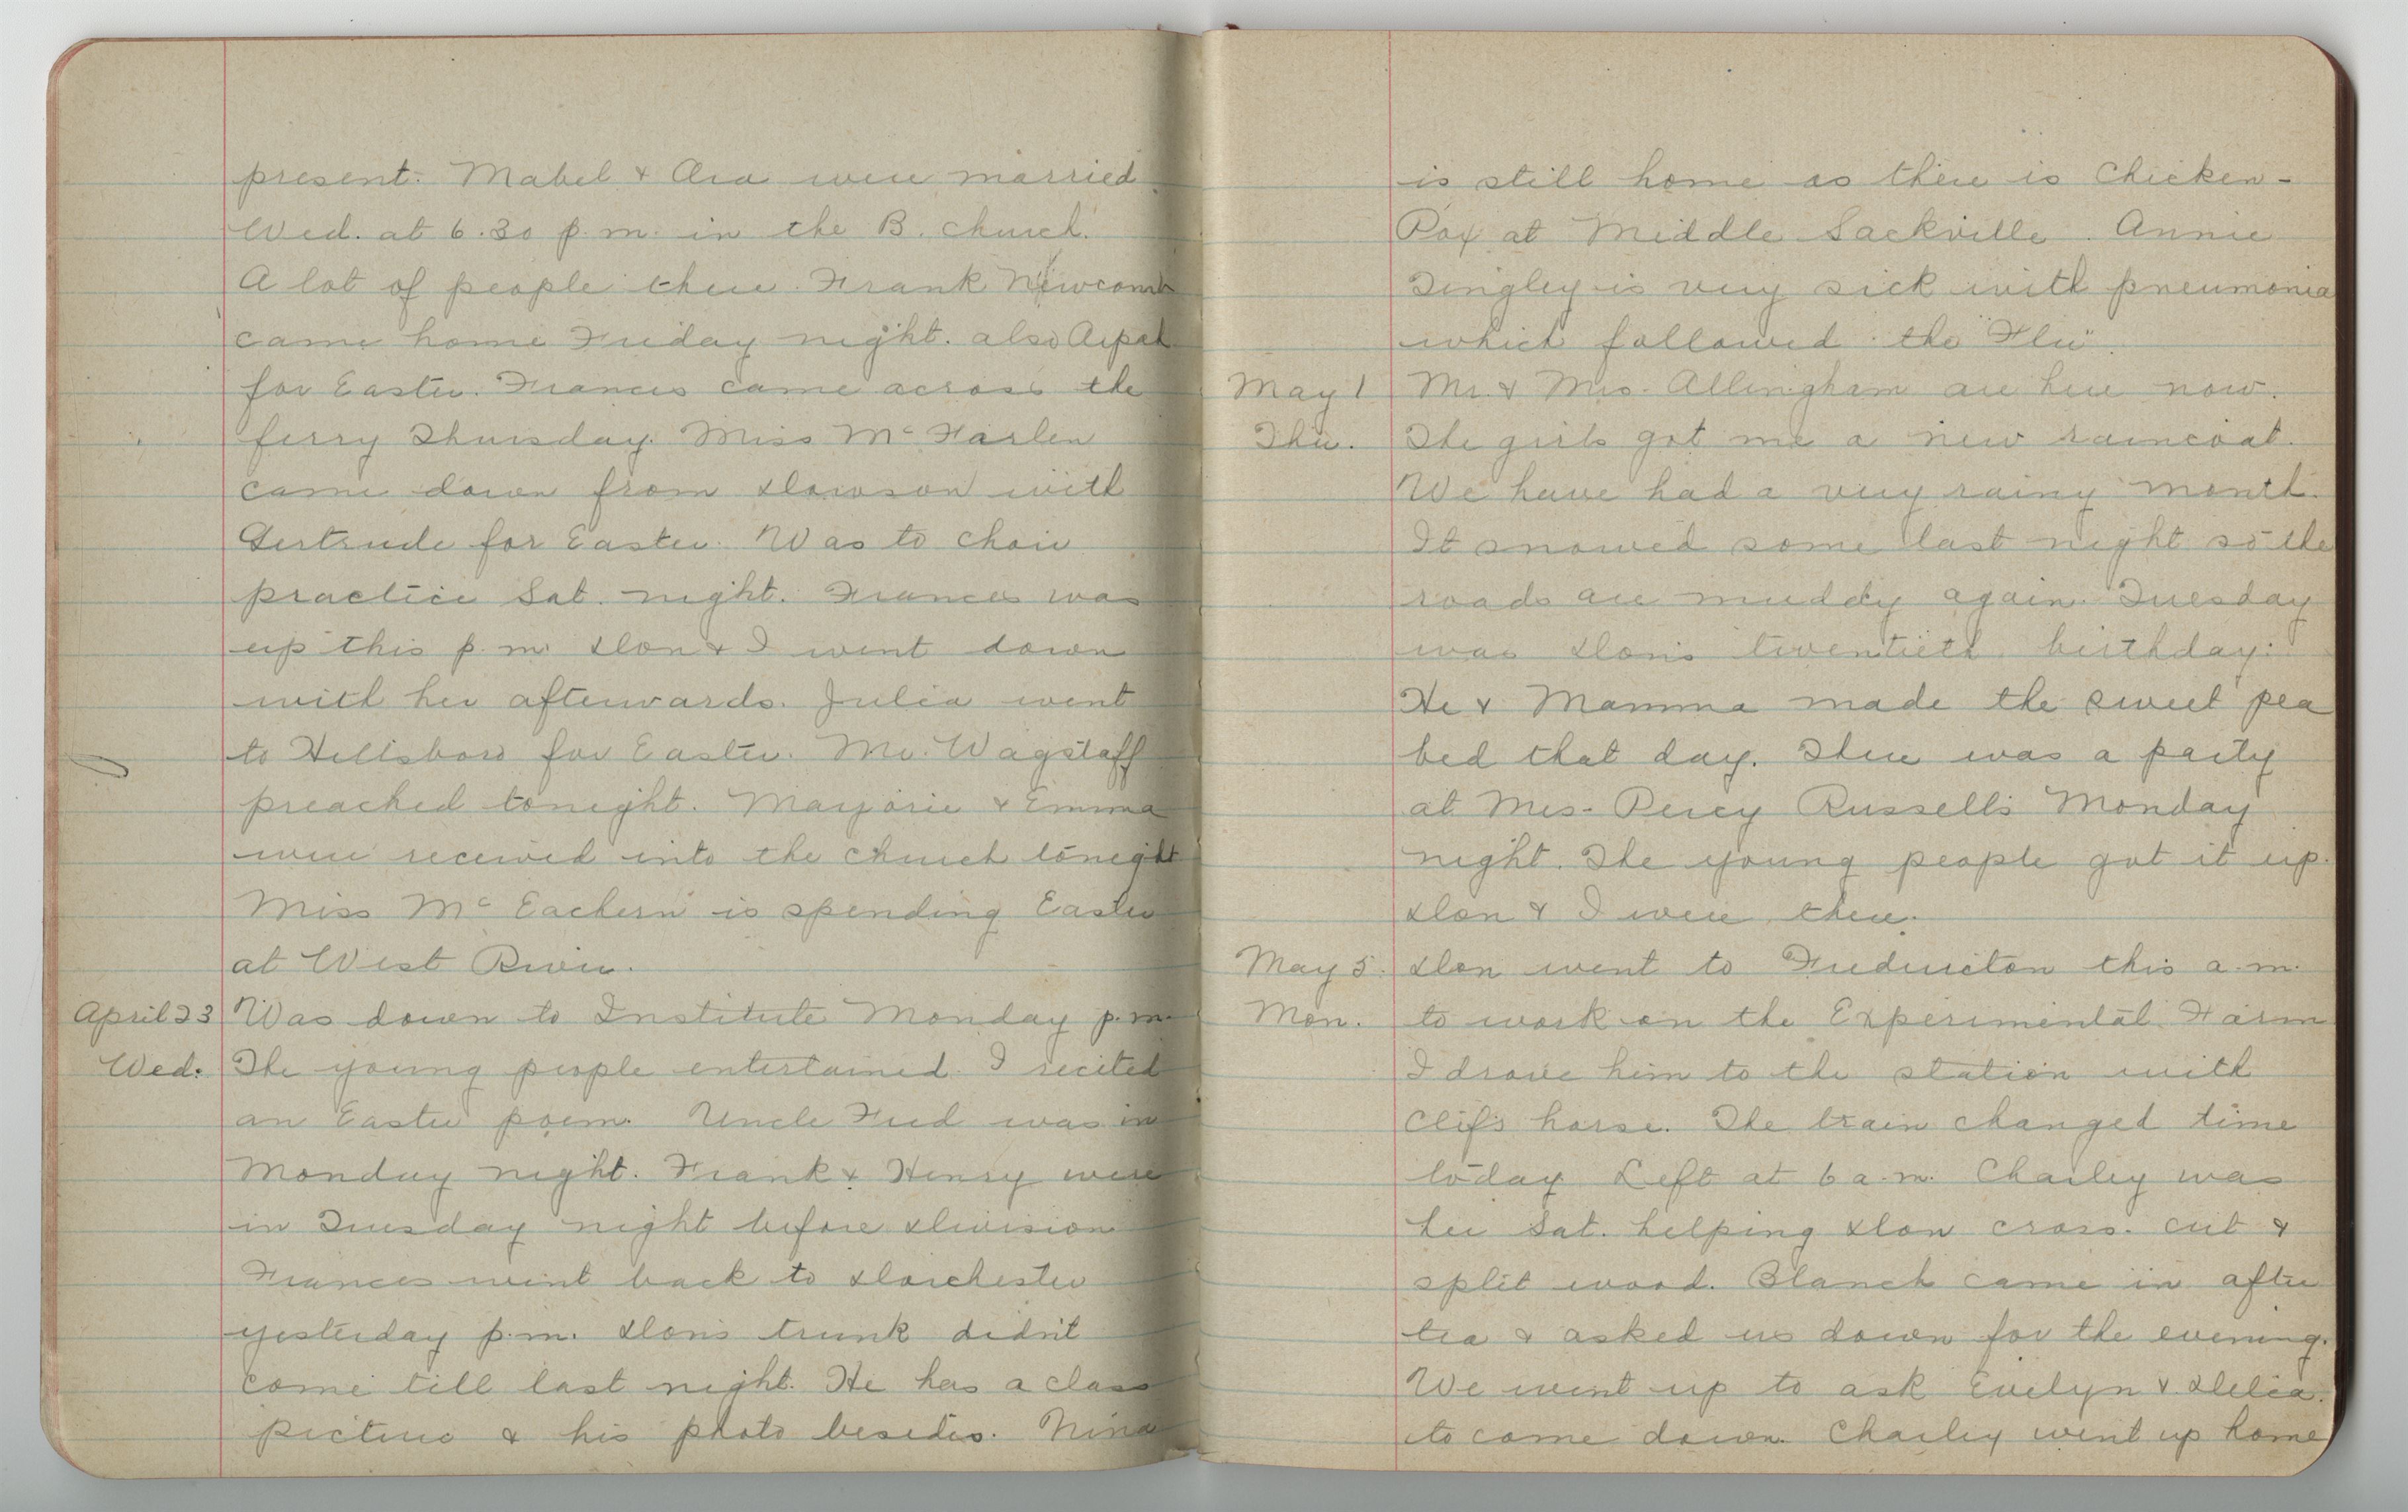 present. Mabel & Ara were married
Wed. at 6.30 p.m. in the B. church.
A lot of people there. Frank Newcomb
came home Friday night. also
for Easter. Frances came across the
ferry Thursday. Miss McFarlen
came down from Dawson with
Gertrude for Easter. Was to choir
practice Sat. night. Frances was
up this p.m. Don & I went down
with her afterwards. Julia went
to Hillsboro for Easter. Mr. Wagstaff
preached tonight. Marjorie & Emma
were received into the church tonight
Miss McEachern is spending Easter
at West River.
April 23 Was down to Institute Monday p.m.
Wed. The young people entertained. I recited
an Easter poem. Uncle Fred was in
Monday night. Frank & Henry were
in Tuesday night before Division
Frances went back to Dorchester
yesterday p.m. Don's trunk didn't
come till last night. He has a class
picture & his photo besides. Nina
is still home as there is Chicken-
Pox at Middle Sackville. Annie
Tingley is very sick with pneumonia
which followed the "Flu".
May 1 Mr. & Mrs. Allingham are here now.
Thu. The girls got me a new raincoat.
We have had a very rainy month.
It snowed some last night so the
roads are muddy again. Tuesday
was Don's twentieth birthday.
He & Mamma made the sweet pea
bed that day. There was a party
at Mrs. Percy Russell's Monday
night. The young people got it up.
Don & I were there.
May 5. Don went to Fredericton this a.m.
Mon. to work on the Experimental Farm
I drove him to the station with
Clif's horse. The train changed time
today. Left at 6 a.m. Charley was
her Sat. helping Don cross-cut &
split wood. Blanch came in after
tea & asked us down for the evening.
We went up to ask Evelyn & Delia
to come down. Charley went up home